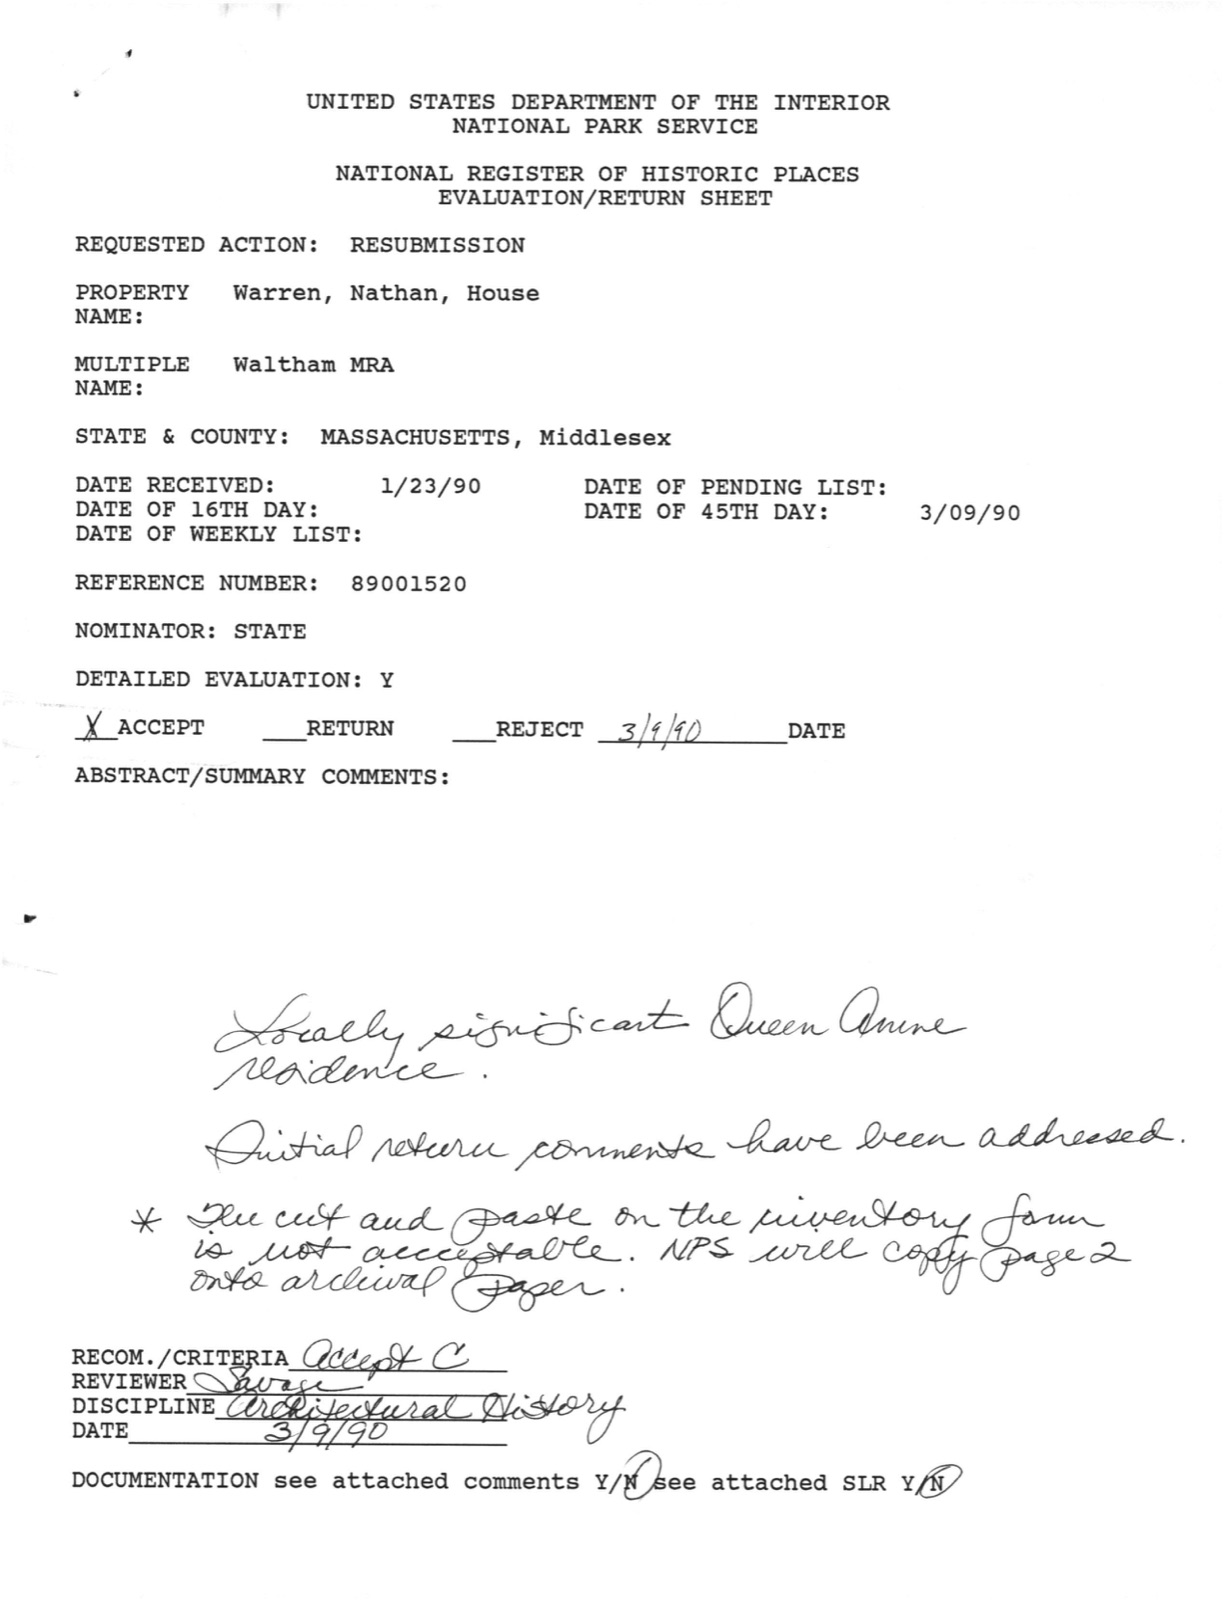 UNITED STATES DEPARTMENT OF THE INTERIOR
NATIONAL PARK SERVICE
NATIONAL REGISTER OF HISTORIC PLACES
EVALUATION/RETURN SHEET
REQUESTED ACTION: RESUBMISSION
PROPERTY Warren, Nathan, House
NAME:
MULTIPLE Waltham MRA
NAME:
STATE & COUNTY: MASSACHUSETTS, Middlesex
DATE RECEIVED: 1/23/90 DATE OF PENDING LIST:
DATE OF 16TH DAY: DATE OF 45TH DAY: 3/09/90
DATE OF WEEKLY LIST:
REFERENCE NUMBER: 89001520
NOMINATOR: STATE
DETAILED EVALUATION: Y
X ACCEPT ___RETURN ___REJECT 3/9/90 DATE
ABSTRACT/SUMMARY COMMENTS:
Locally significant Queen Anne
residence.
Initial return comments have been addressed.
* The cut and paste on the inventory form
is not acceptable. NPS will copy page 2
onto archival paper.
RECOM./CRITERIA Accept C
REVIEWER Savage
DISCIPLINE Architectural History
DATE 3/9/90
DOCUMENTATION see attached comments Y/N see attached SLR Y/N